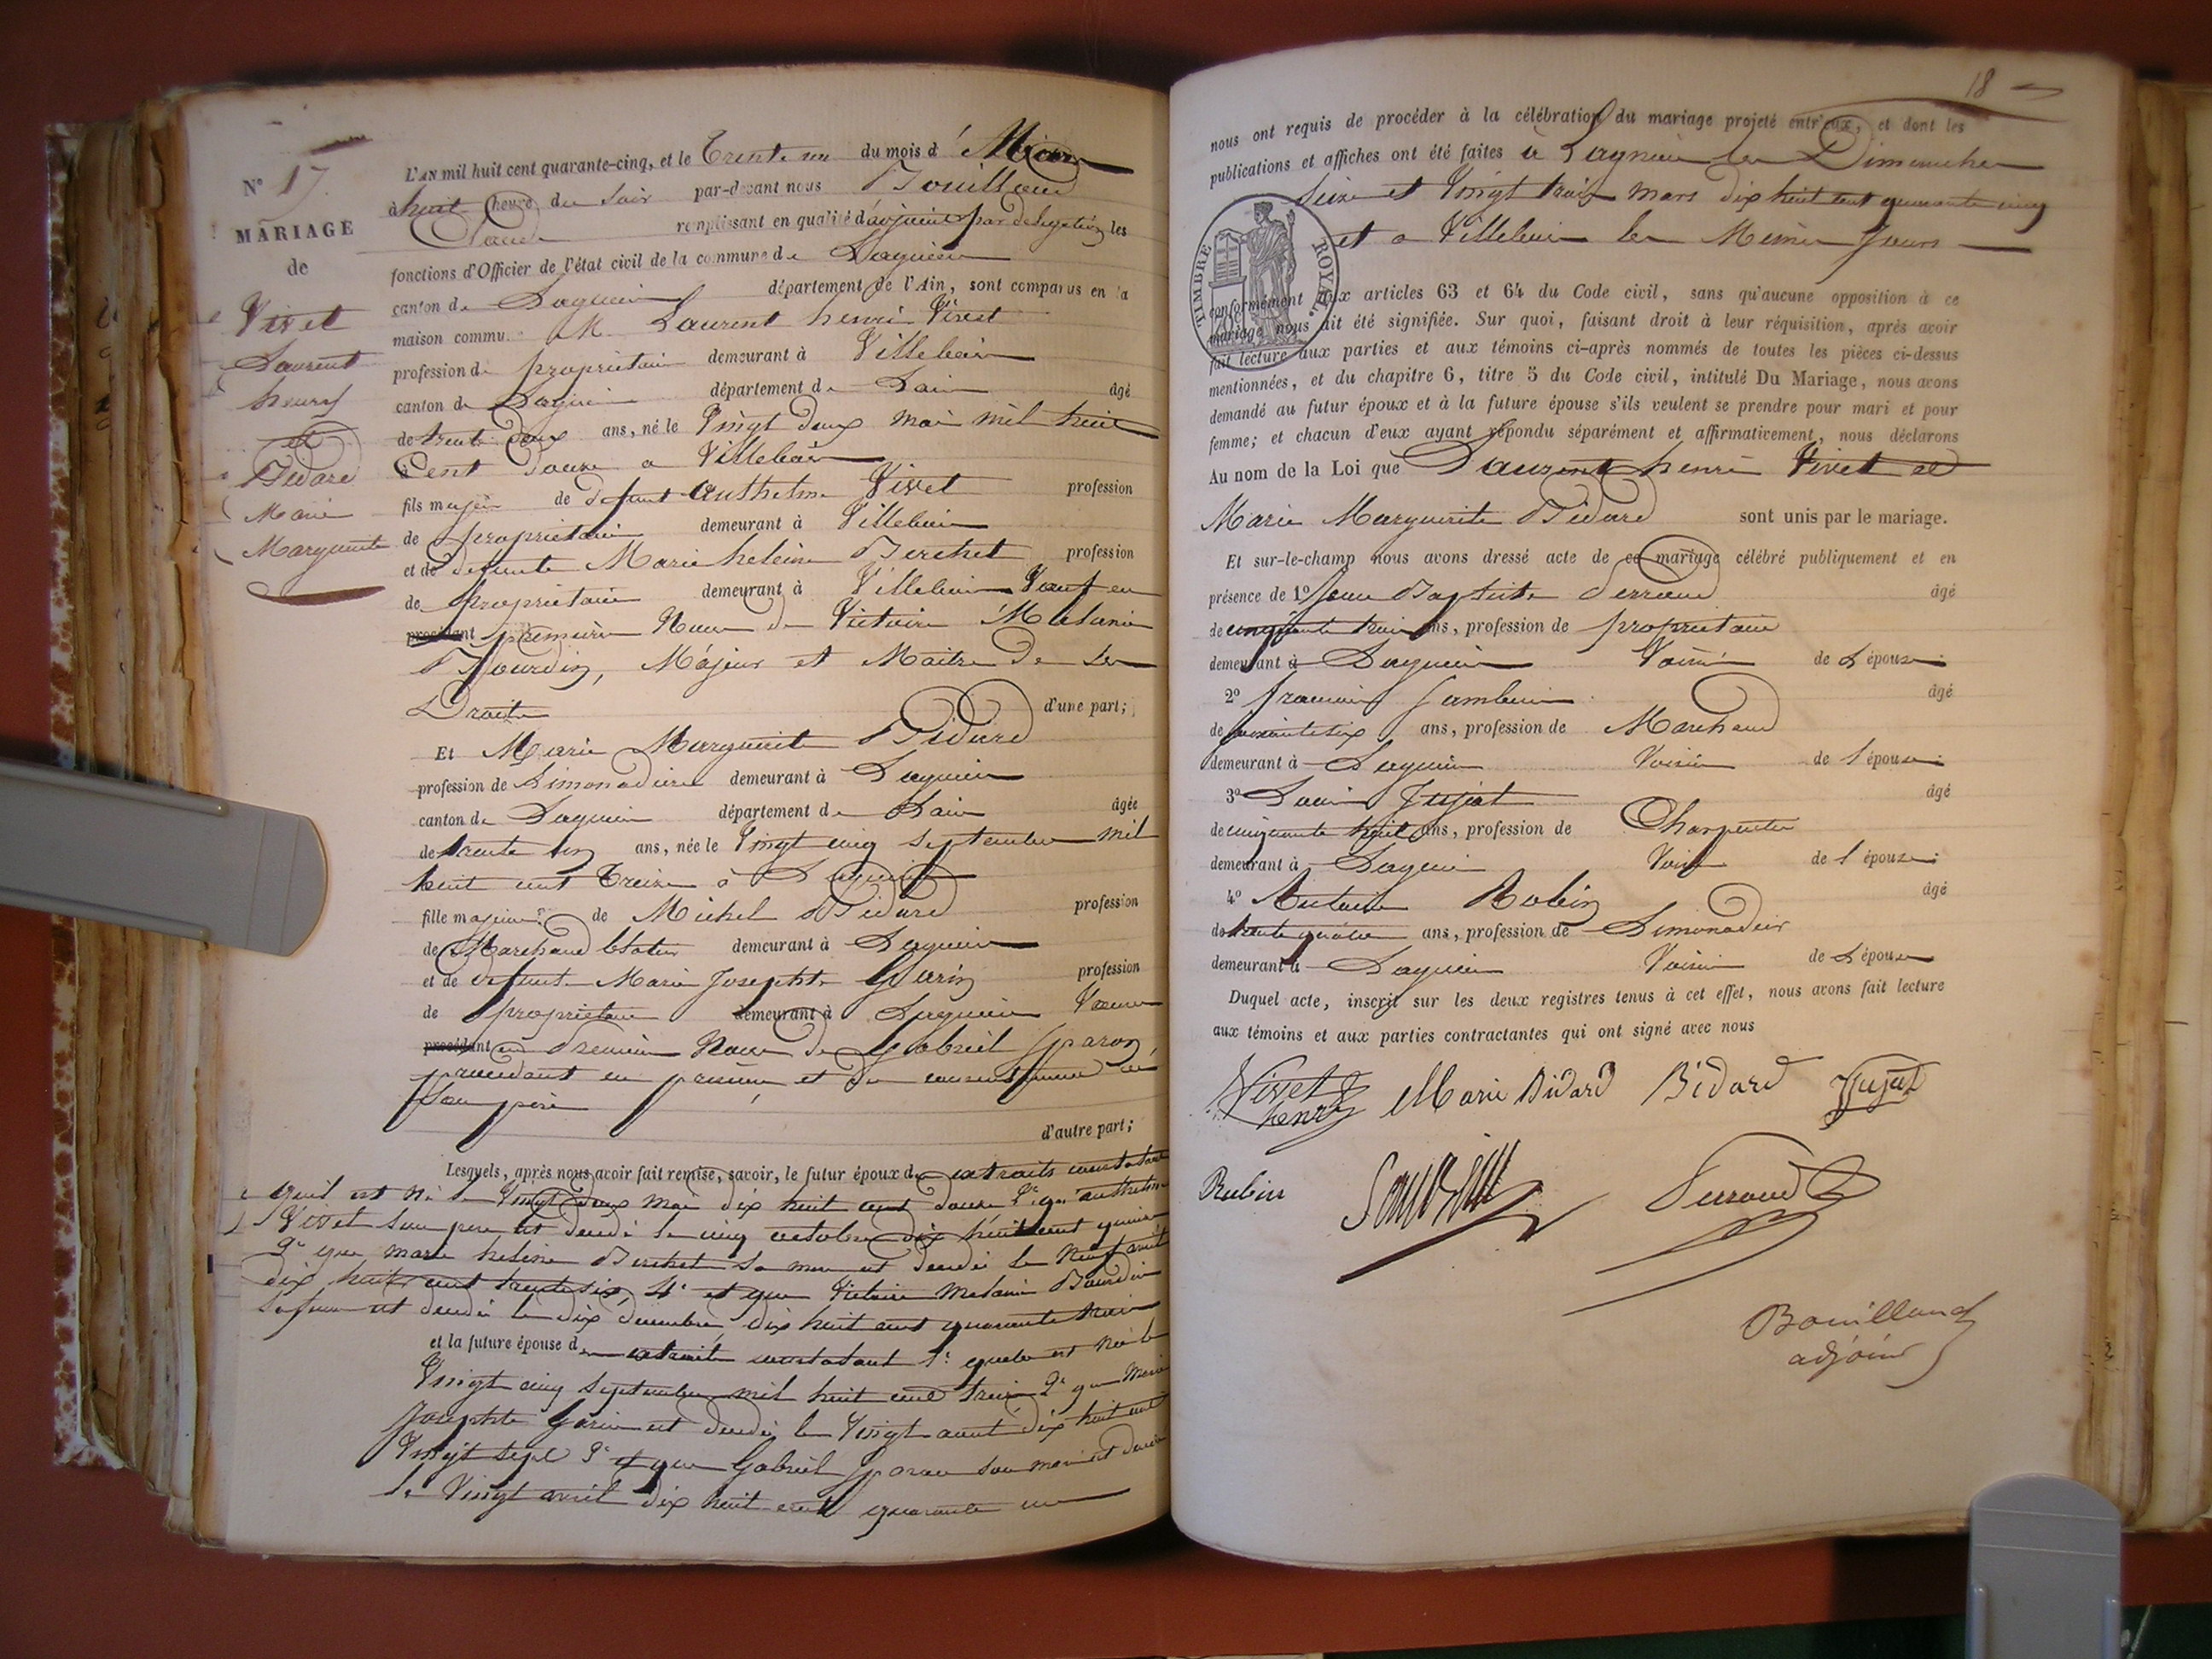 N° 17
MARIAGE
de
Vivet
Laurent
henry
et
Bidard
Marie
Marguerite
L'AN mil huit cent quarante-cinq, et le Trente un du mois d Mars
à huit heure du soir par-devant nous Bouilland
Claude remplissant en qualité d'adjoint par délégation les
fonctions d'Officier de l'état civil de la commune de Lagnieu
canton de Lagnieu département de l'Ain, sont comparus en la
maison commune M. Laurent henri Vivet
profession de propriétaire demeurant à Villebois
canton de Lagnieu département de Lain âgé
de trente deux ans, né le Vingt deux mai mil huit
Cent douze a Villebois
fils majeur de defunt Anthelme Vivet profession
de propriétaire demeurant à Villebois
et de defunte Marie heleine Berchet profession
de propriétaire demeurant à Villebois Veuf en
procédant premiere Noce de Victoire Melanie
Bourdin, Majeur et Maitre De ses
Droits d'une part;
Et Marie Marguerite Bidard
profession de Limonadiere demeurant à Lagnieu
canton de Lagnieu département de Lain âgée
de trente un ans, née le Vingt cinq septembre mil
huit cent treize à Lagnieu
fille majeure de Michel Bidard profession
de Marchand demeurant à Lagnieu
et de defunte Marie Josephte Garin profession
de propriétaire demeurant à Lagnieu Veuve
procédant en premiere Noce de Gabriel
procedant en présence et du consentement de
Son père
d'autre part;
Lesquels, après nous avoir fait remise, savoir, le futur époux d extraits constatant
quil est né le Vingt deux mai dix huit cent douze 2° que anthelme
Vivet son pere est decedé le cinq octobre dix huit cent quinze
3° que marie helene Berchet sa mere est decedée le Neuf avril
dix huit cent trente six, 4° et que Victoire Melanie Bourdin
sa femme est decedée le dix decembre dix huit cent quarante trois
et la future épouse d extraits constatant 1° quelle est Née le
Vingt cinq septembre mil huit cent treize 2° que Marie
Josephte Garin est decedée le Vingt aout dix huit cent
Vingt sept 3° et que Gabriel son mari est decedé
le Vingt avril dix huit cent quarante un
18
nous ont requis de procéder à la célébration du mariage projeté entr'eux, et dont les
publications et affiches ont été faites à Lagnieu les Dimanches
Seize et Vingt trois mars dix huit cent quarante cinq
et a Villebois les Memes Jours
TIMBRE ROYAL
conformément aux articles 63 et 64 du Code civil, sans qu'aucune opposition à ce
mariage nous ait été signifiée. Sur quoi, faisant droit à leur réquisition, après avoir
fait lecture aux parties et aux témoins ci-après nommés de toutes les pièces ci-dessus
mentionnées, et du chapitre 6, titre 5 du Code civil, intitulé Du Mariage, nous avons
demandé au futur époux et à la future épouse s'ils veulent se prendre pour mari et pour
femme; et chacun d'eux ayant répondu séparément et affirmativement, nous déclarons
Au nom de la Loi que Laurent henri Vivet et
Marie Marguerite Bidard sont unis par le mariage.
Et sur-le-champ nous avons dressé acte de ce mariage célébré publiquement et en
présence de 1° Jean Baptiste Perroud âgé
de cinquante trois ans, profession de propriétaire
demeurant à Lagnieu Voisin de Lépouse
2° francois âgé
de ans, profession de Marchand
demeurant à Lagnieu Voisin de l'épouse
3° Louis Jujat âgé
de cinquante huit ans, profession de Charpentier
demeurant à Lagnieu Voisin de l'épouse
4° Antoine Robin âgé
de trente quatre ans, profession de Limonadier
demeurant à Lagnieu Voisin de Lépouse
Duquel acte, inscrit sur les deux registres tenus à cet effet, nous avons fait lecture
aux témoins et aux parties contractantes qui ont signé avec nous
Vivet Marie Bidard Bidard Jujat
henry
Rubin Perroud
Bouilland
adjoint